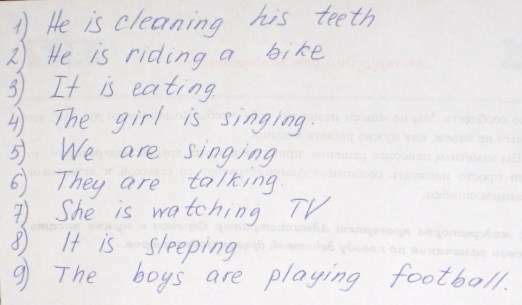 1) He is cleaning his teeth
2) He is riding a bike
3) It is eating
4) The girl is singing.
5) We are singing
6) They are talking.
7) She is watching TV
8) It is sleeping
9) The boys are playing football.